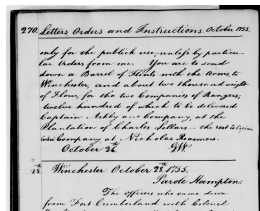 270. Letters, Orders and Instructions. October 1755.
only for the publick use, unless by particu-
lar Orders from me. You are to send
down a Barrel of Flints with the Arms, to
Winchester, and about two thousand weight
of Flour, for the two Companies of Rangers;
twelve hundred of which to be delivered
Captain Ashby and Company, at the
Plantation of Charles Sellars — the rest to Captain
Cocks Company at Nicholas Reasmers.
October 26. GW
28. Winchester: October 28th 1755.
Parole Hampton.
The officers who came down
from Fort Cumberland with Colonel